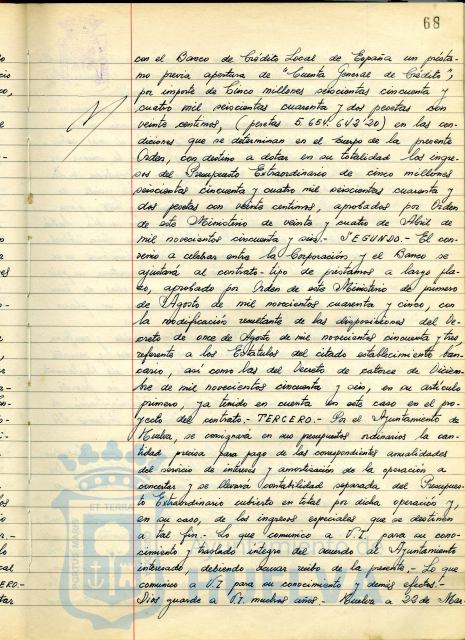 68
con el Banco de Crédito Local de España un présta-
mo previa apertura de "Cuenta General de Crédito",
por importe de Cinco millones seiscientas cincuenta y
cuatro mil seiscientas cuarenta y dos pesetas con
veinte centimos, (pesetas 5.654.642'20) en las con-
diciones que se determinan en el cuerpo de la presente
Orden, con destino a dotar en su totalidad los ingre-
sos del Presupuesto Extraordinario de cinco millones
seiscientas cincuenta y cuatro mil seiscientas cuarenta y
dos pesetas con veinte centimos, aprobados por Orden
de este Ministerio de veinte y cuatro de Abril de
mil novecientos cincuenta y seis.- SEGUNDO.- El con-
venio a celebrar entre la Corporación y el Banco se
ajustará al contrato-tipo de préstamos a largo pla-
zo, aprobado por Orden de este Ministerio de primero
de Agosto de mil novecientos cuarenta y cinco, con
la modificación resultante de las disposiciones del De-
creto de once de Agosto de mil novecientos cincuenta y tres,
referente a los Estatutos del citado establecimiento ban-
cario, asi como las del Decreto de catorce de Diciem-
bre de mil novecientos cincuenta y seis, en su articulo
primero, ya tenido en cuenta en este caso en el pro-
yecto del contrato.- TERCERO.- Por el Ayuntamiento de
Huelva, se consignará en sus presupuestos ordinarios la can-
tidad precisa para pago de las correspondientes anualidades
del servicio de intereses y amortización de la operación a
concertar y se llevará contabilidad separada del Presupues-
to Extraordinario cubierto en total por dicha operación y,
en su caso, de los ingresos especiales que se destinen
a tal fin.- Lo que comunico a V.I. para su cono-
cimiento y traslado integro del acuerdo al Ayuntamiento
interesado, debiendo acusar recibo de la presente.- Lo que
comunico a V.I para su conocimiento y demás efectos.-
Dios guarde a V.I. muchos años.- Huelva a 22 de Mar-